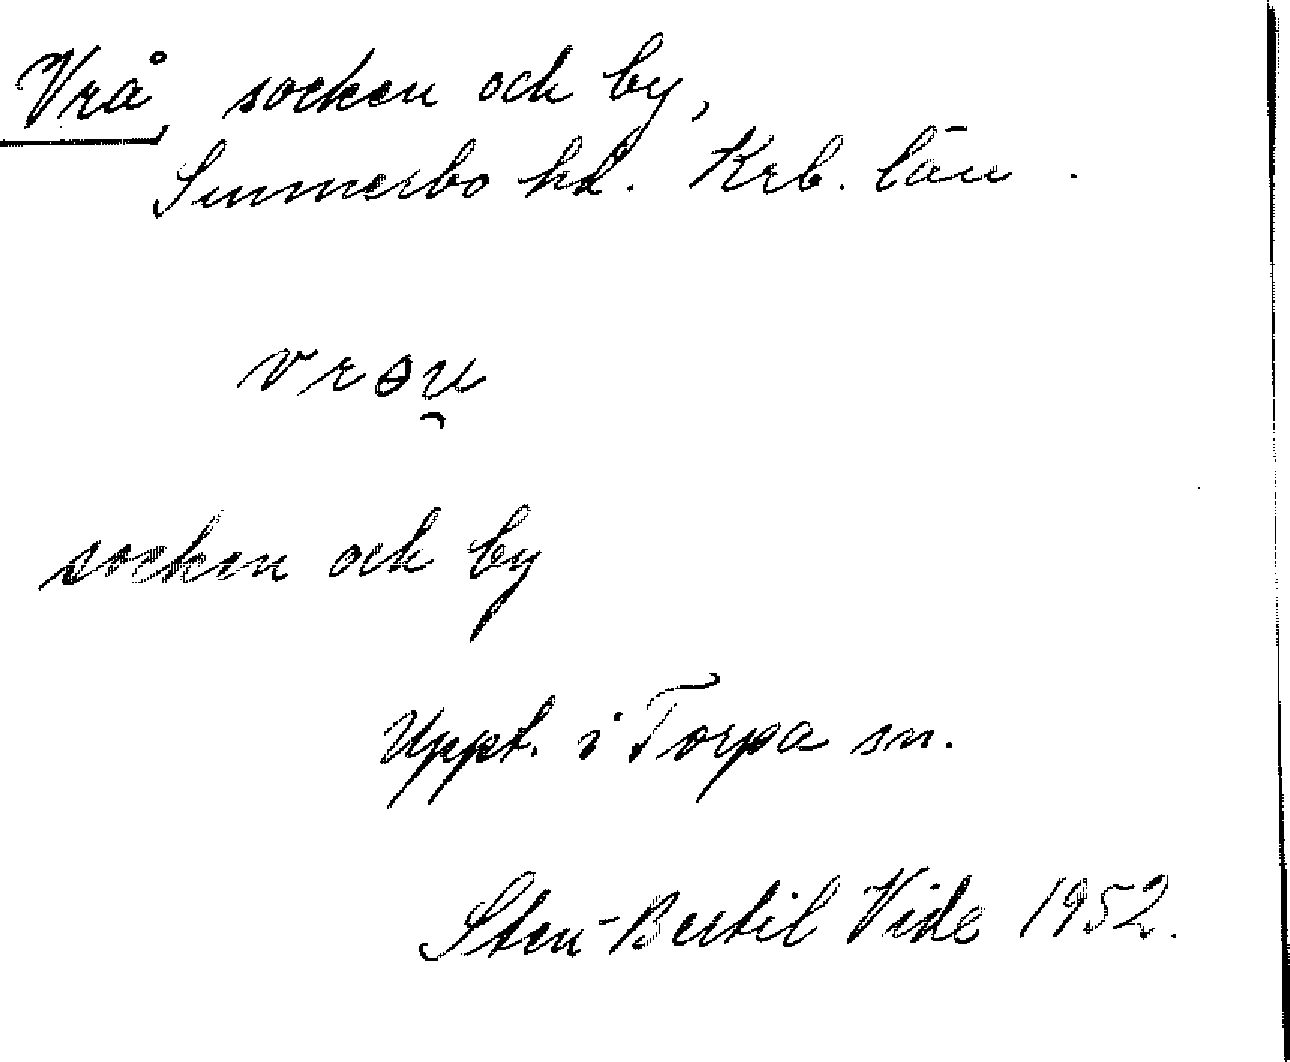 Vrå, socken och by,
Sunnerbo hd. Krb. län.
vrɵu̯
socken och by
Uppt. i Torpa sn.
Sten-Bertil Vide 1952.